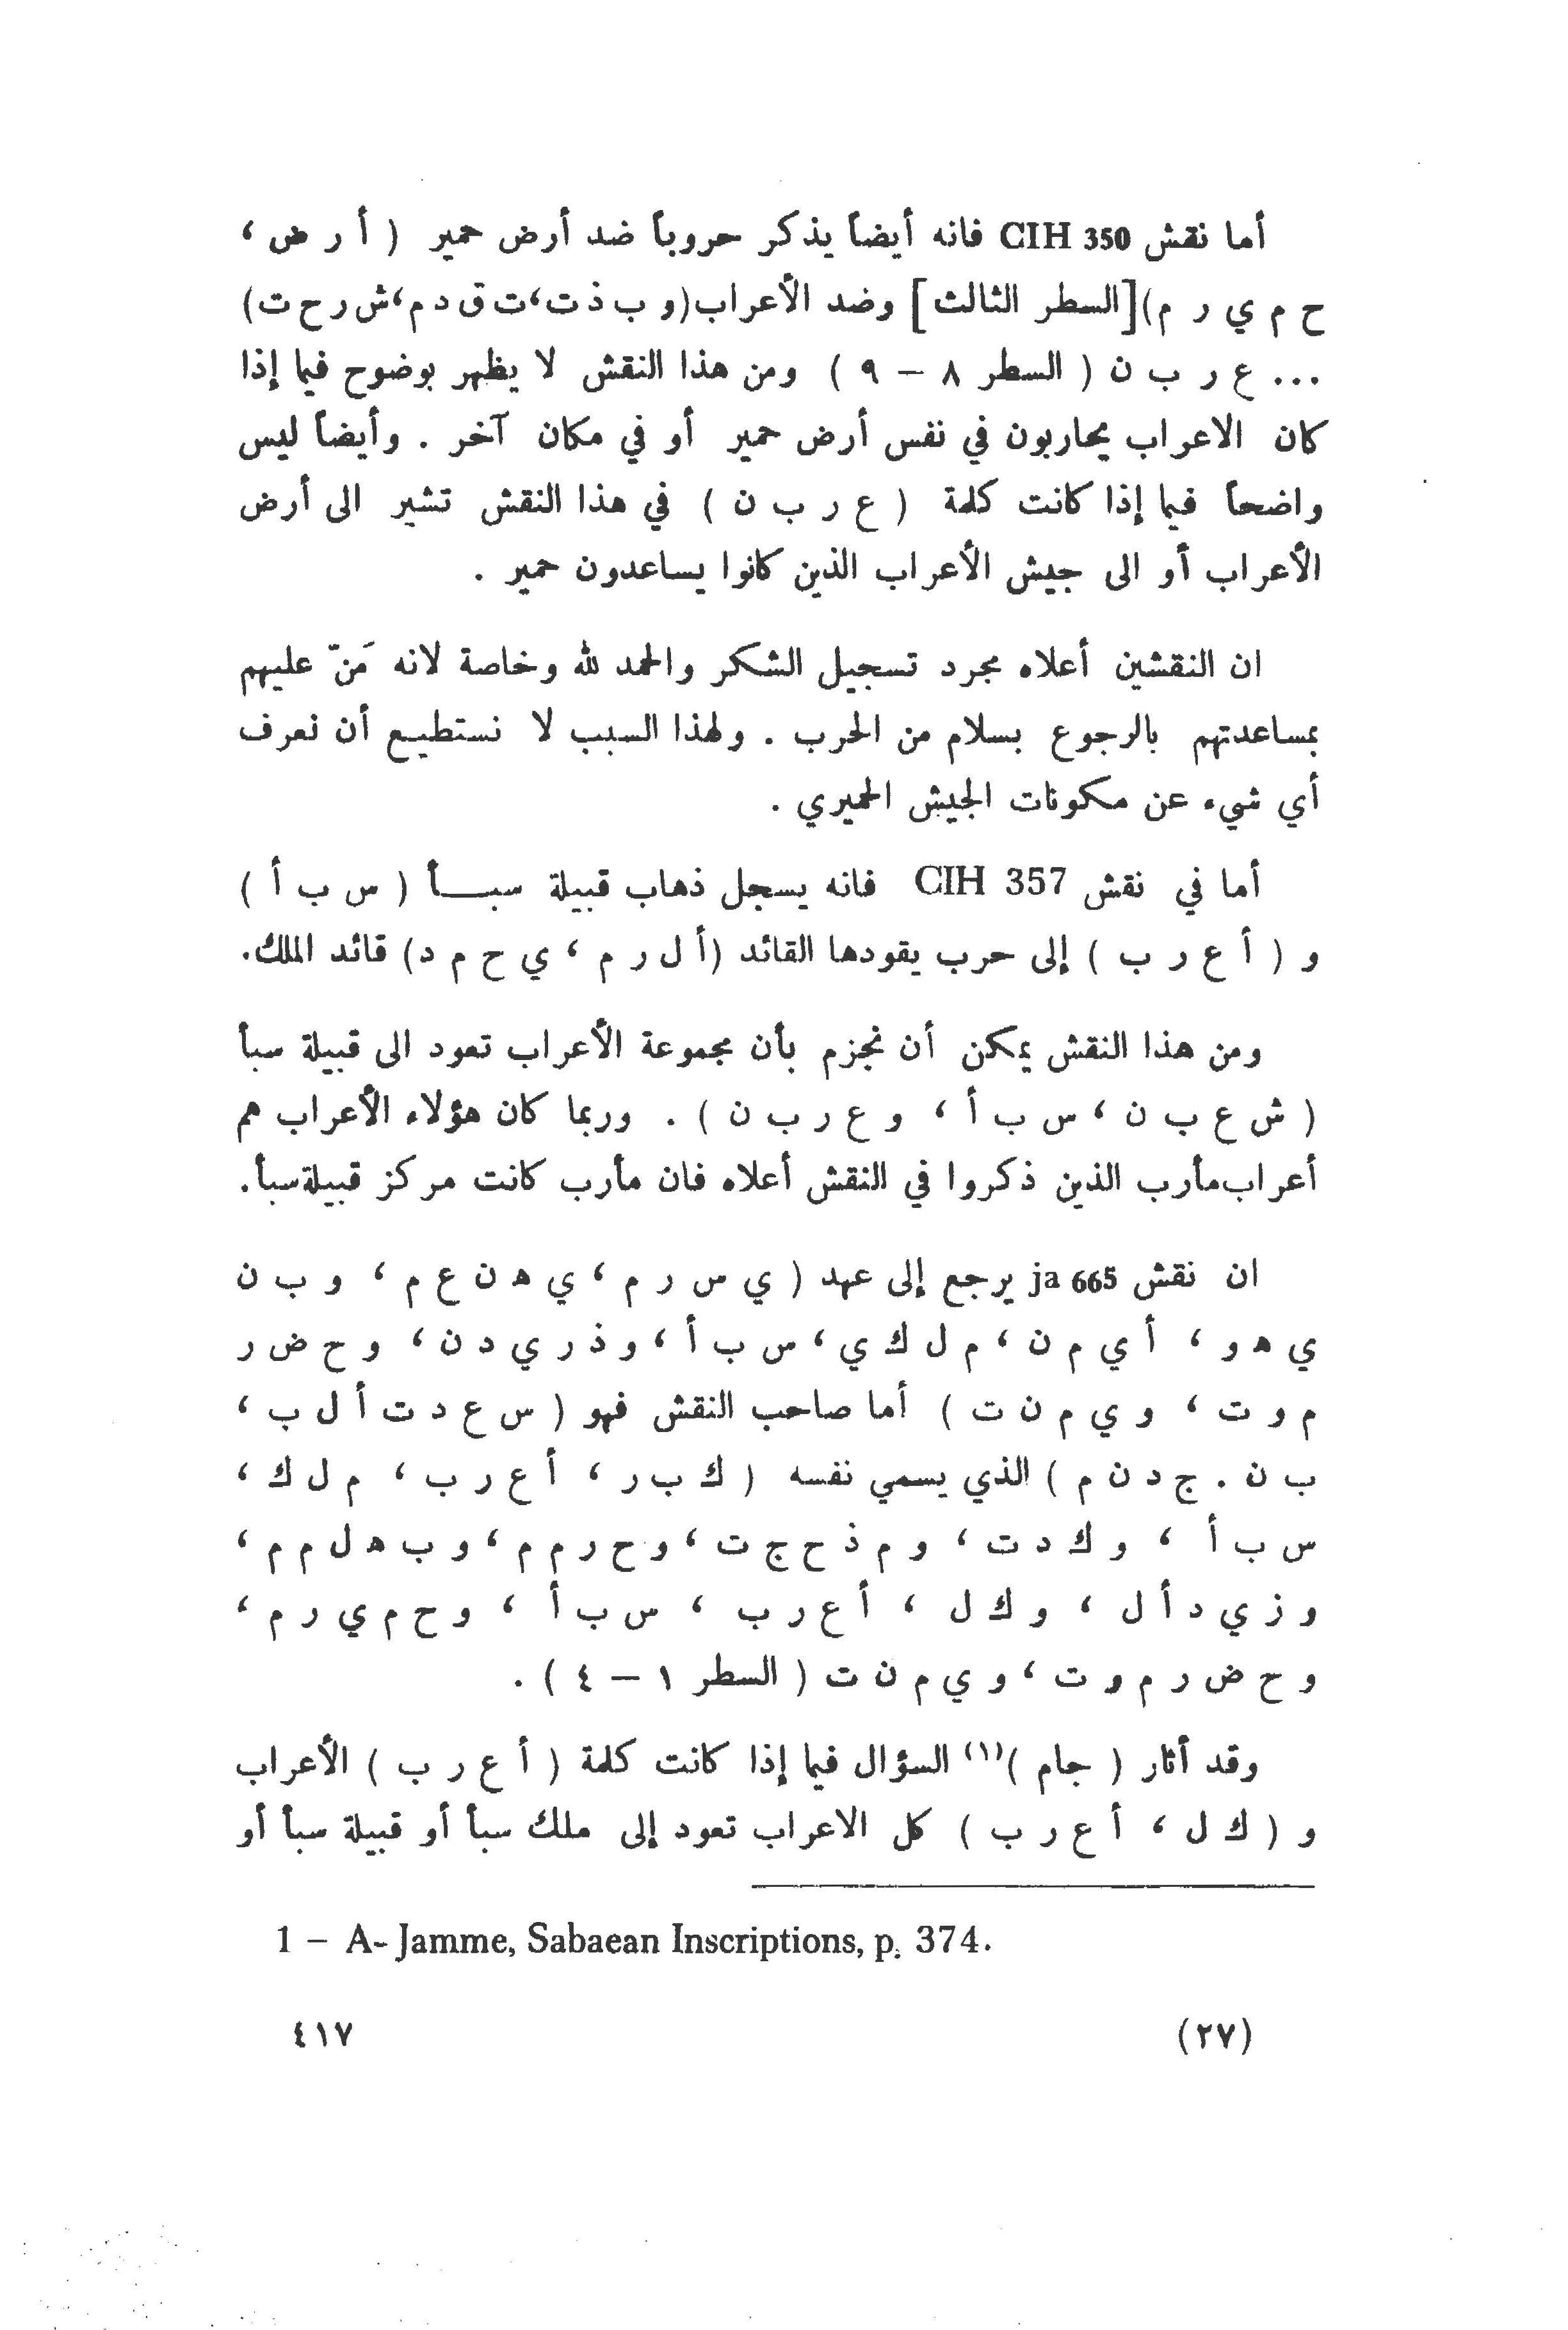 أما نقش CIH 350 فانه أيضاً يذكر حروباً ضد أرض حمير ( أ ر ض ،
ح م ي ر م)[السطر الثالث] وضد الأعراب(و ب ذ ت،ت ق د م،ش ر ح ت)
... ع ر ب ن ( السطر ٨ – ٩ ) ومن هذا النقش لا يظهر بوضوح فيما إذا
كان الاعراب يحاربون في نفس أرض حمير أو في مكان آخر . وأيضاً ليس
واضحاً فيما إذا كانت كلمة ( ع ر ب ن ) في هذا النقش تشير الى أرض
الأعراب أو الى جيش الأعراب الذين كانوا يساعدون حمير .
ان النقشين أعلاه مجرد تسجيل الشكر والحمد لله وخاصة لانه مَنّ عليهم
بمساعدتهم بالرجوع بسلام من الحرب . ولهذا السبب لا نستطيع أن نعرف
أي شيء عن مكونات الجيش الحميري .
أما في نقش CIH 357 فانه يسجل ذهاب قبيلة سبأ ( س ب أ )
و ( أ ع ر ب ) إلى حرب يقودها القائد (أ ل ر م ، ي ح م د) قائد الملك.
ومن هذا النقش يمكن أن نجزم بأن مجموعة الأعراب تعود الى قبيلة سبأ
( ش ع ب ن ، س ب أ ، و ع ر ب ن ) . وربما كان هؤلاء الأعراب هم
أعراب مأرب الذين ذكروا في النقش أعلاه فان مأرب كانت مركز قبيلة سبأ.
ان نقش ja 665 يرجع إلى عهد ( ي س ر م ، ي ه ن ع م ، و ب ن
ي ه و ، أ ي م ن ، م ل ك ي ، س ب أ ، و ذ ر ي د ن ، و ح ض ر
م و ت ، و ي م ن ت ) أما صاحب النقش فهو ( س ع د ت أ ل ب ،
ب ن . ج د ن م ) الذي يسمي نفسه ( ك ب ر ، أ ع ر ب ، م ل ك ،
س ب أ ، و ك د ت ، و م ذ ح ج ت ، و ح ر م م ، و ب ه ل م م ،
و ز ي د أ ل ، و ك ل ، أ ع ر ب ، س ب أ ، و ح م ي ر م ،
و ح ض ر م و ت ، و ي م ن ت ( السطر ١ – ٤ ) .
وقد أثار ( جام )(١) السؤال فيما إذا كانت كلمة ( أ ع ر ب ) الأعراب
و ( ك ل ، أ ع ر ب ) كل الاعراب تعود إلى ملك سبأ أو قبيلة سبأ أو
1 – A- Jamme, Sabaean Inscriptions, p. 374.
(٢٧) ٤١٧